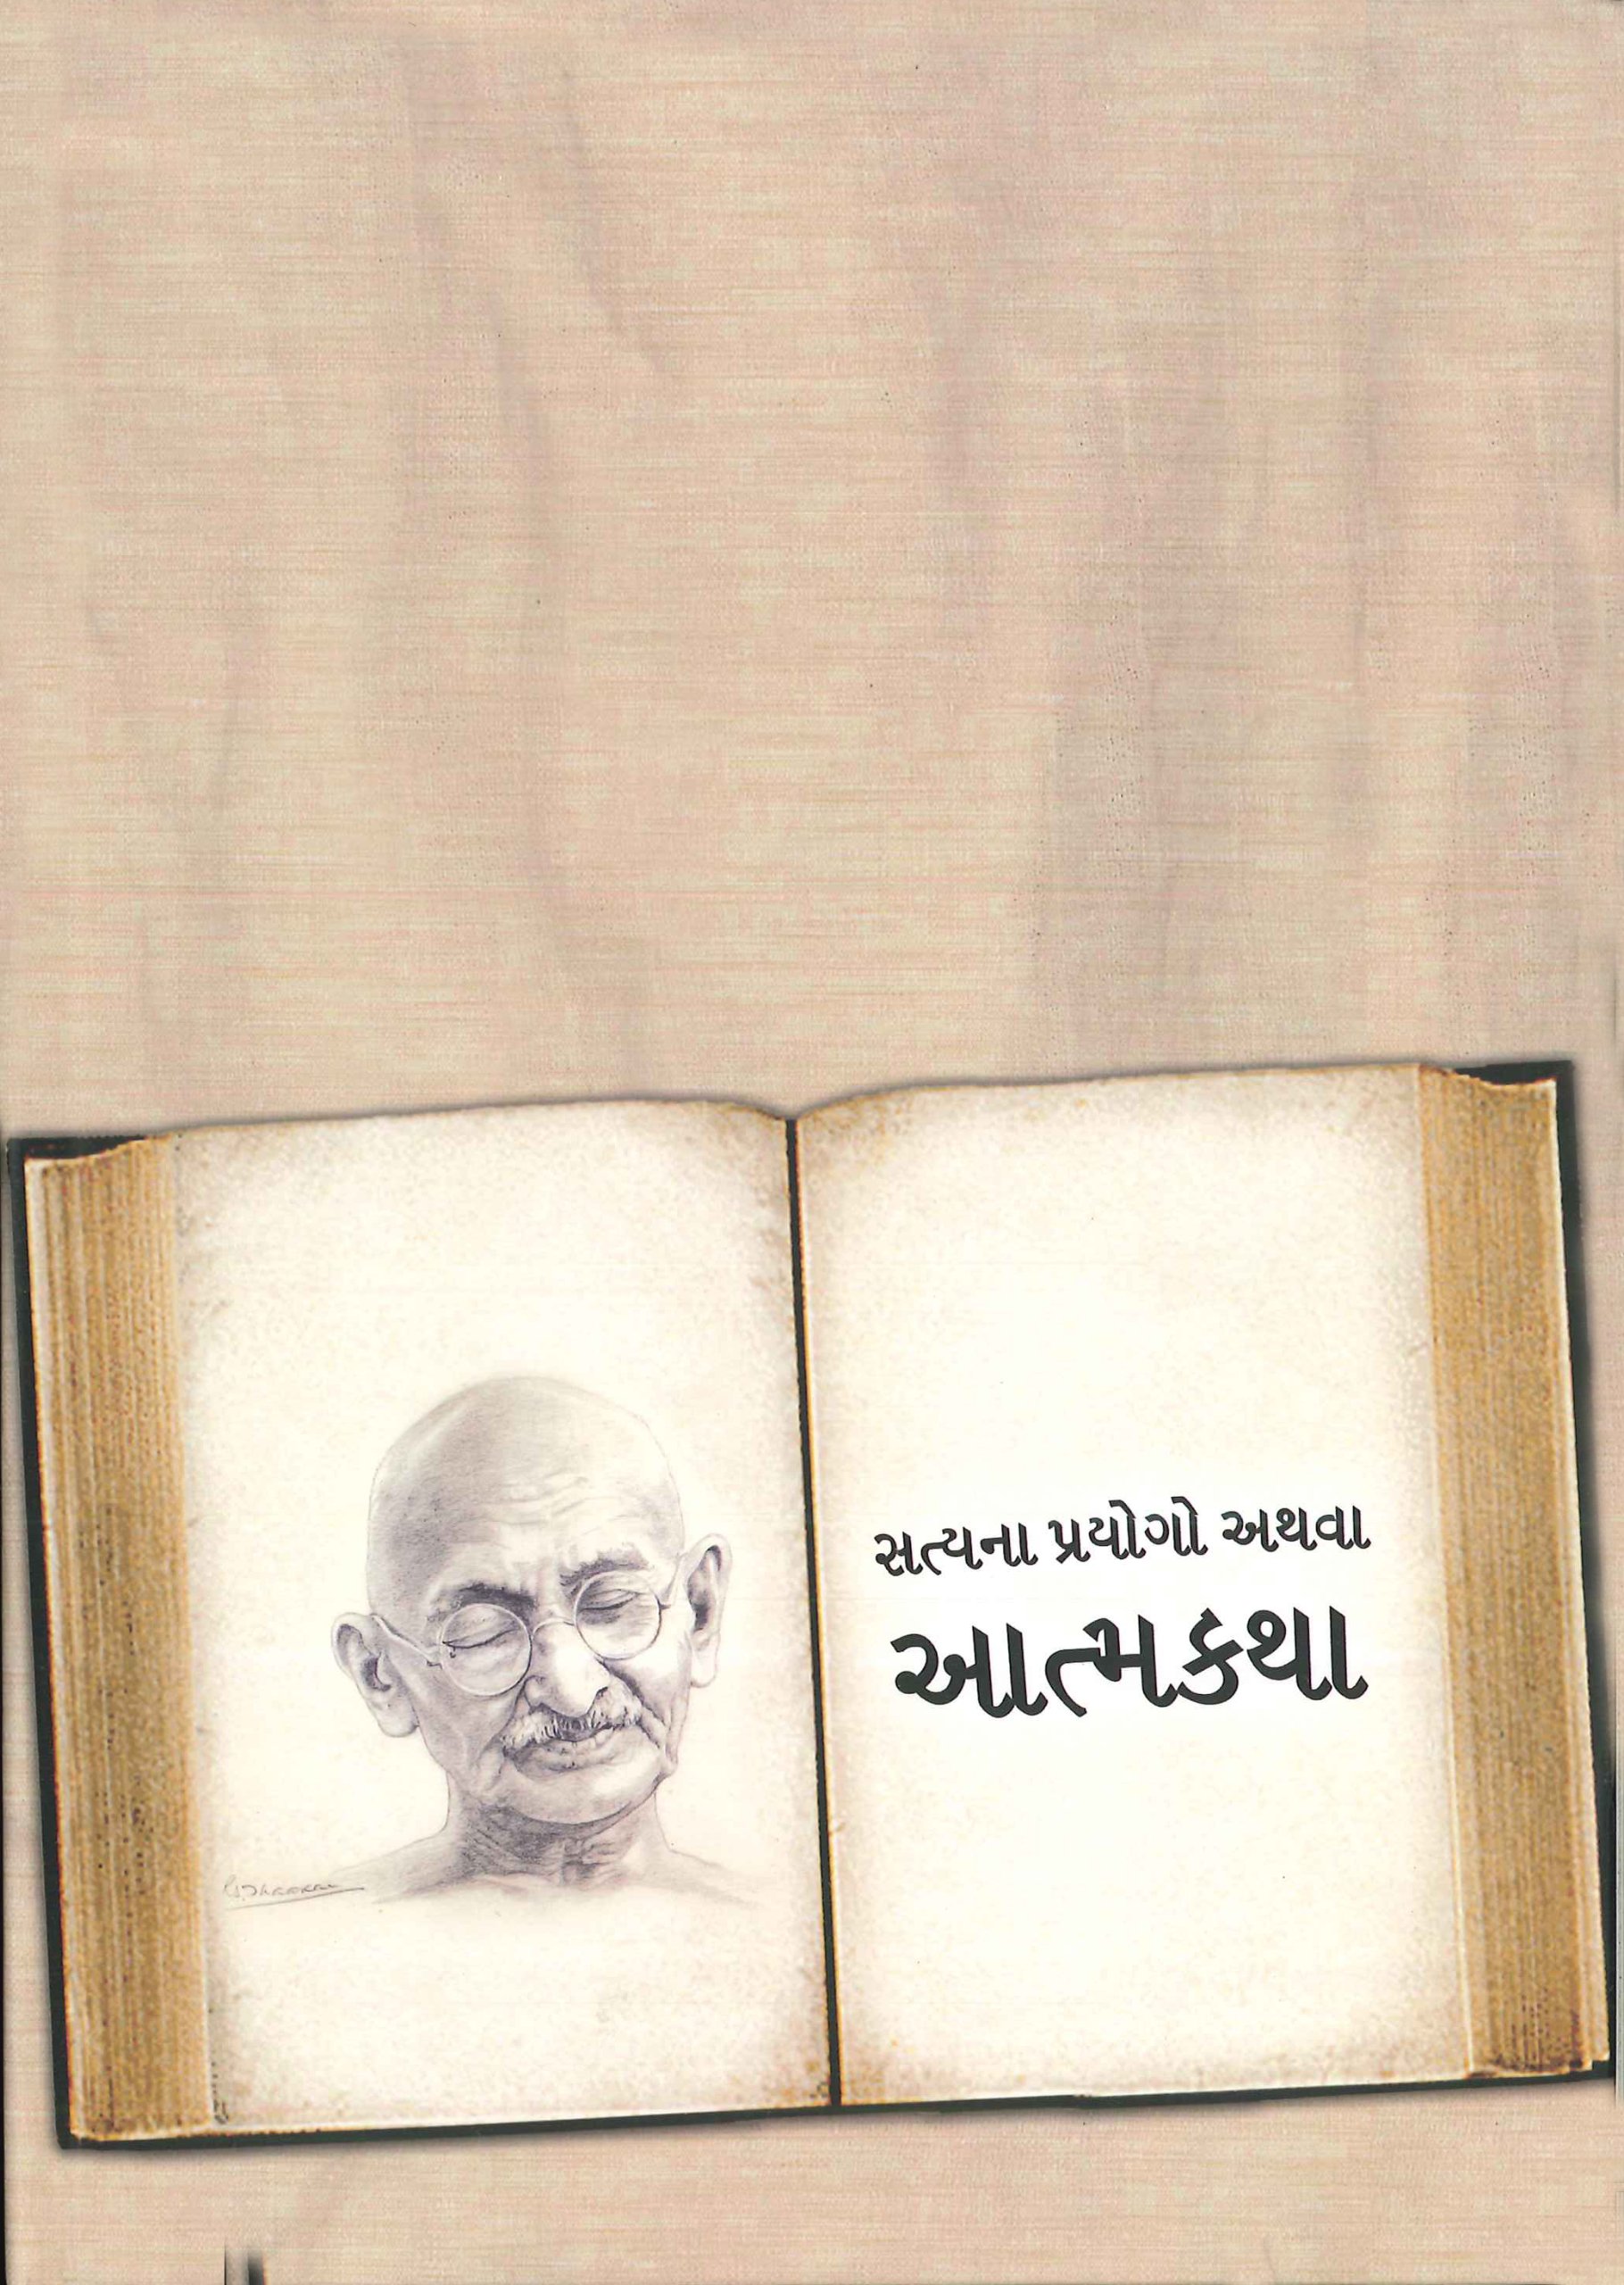 સત્યના પ્રયોગો અથવા
આત્મકથા